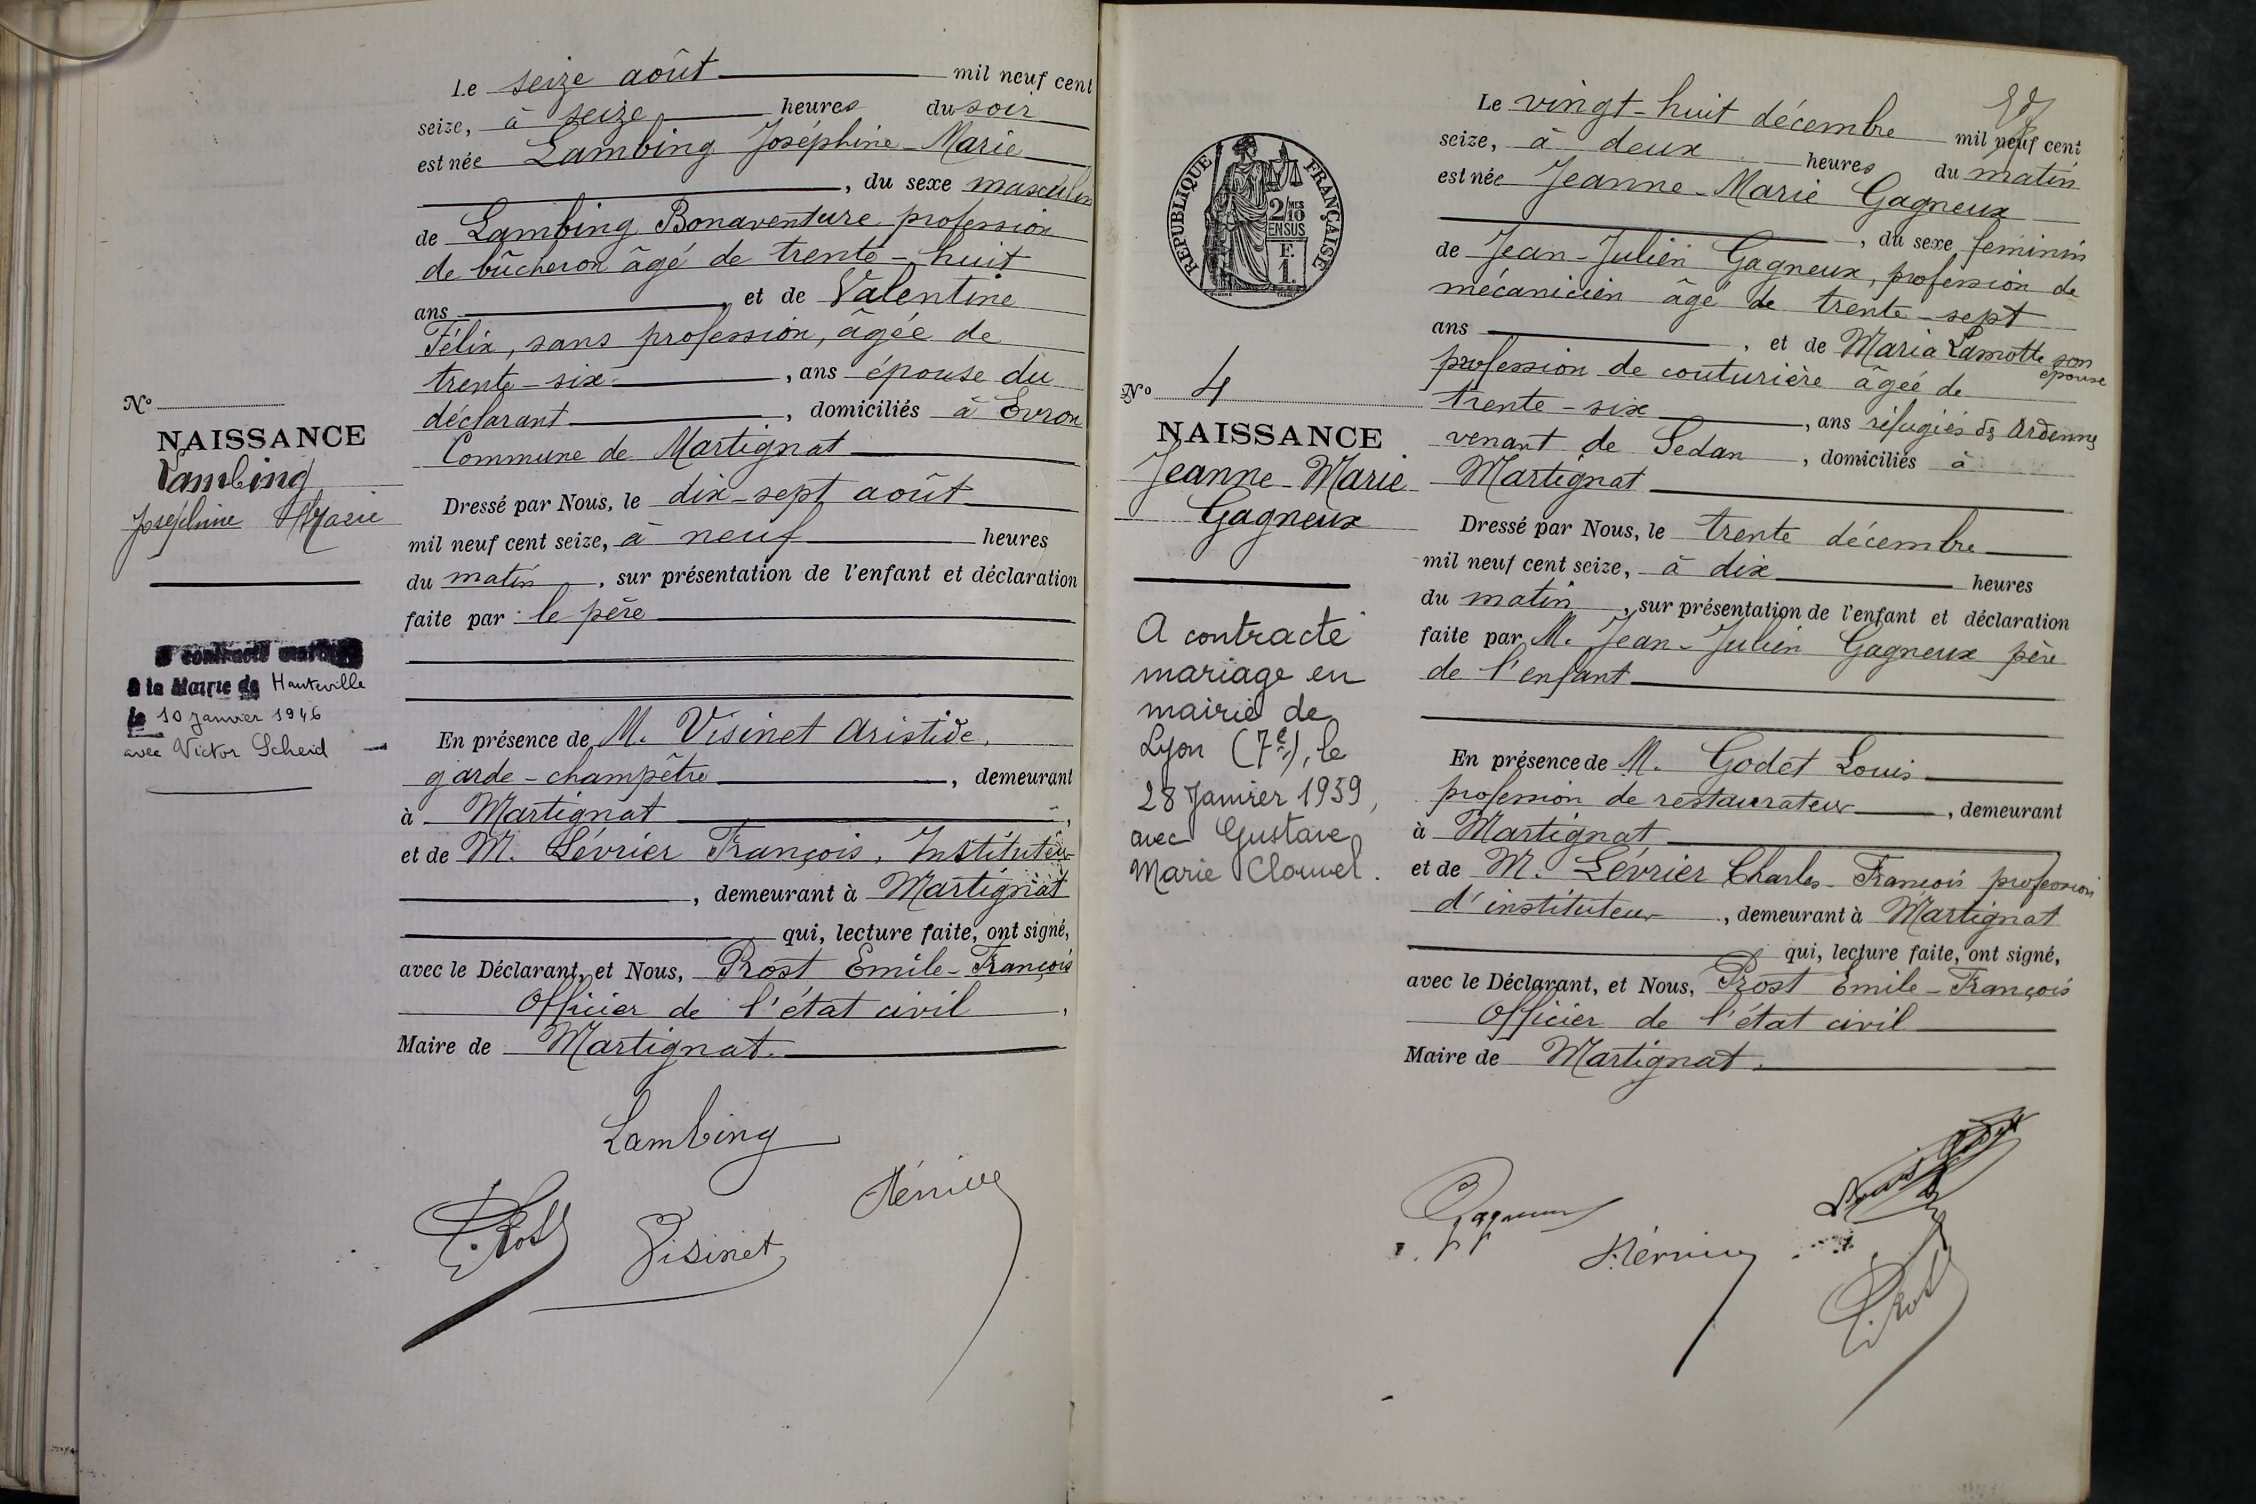 Le seize août mil neuf cent
seize, à seize heures du soir
est née Lambing Joséphine Marie
, du sexe masculin
de Lambing Bonaventure profession
de bûcheron âgé de trente-huit
ans , et de Valentine
Félix, sans profession, âgée de
trente-six , ans épouse du
déclarant , domiciliés à Evron
Commune de Martignat
Dressé par Nous, le dix-sept août
mil neuf cent seize, à neuf heures
du matin , sur présentation de l'enfant et déclaration
faite par le père
En présence de M. Visinet Aristide,
garde-champêtre , demeurant
à Martignat ,
et de M. Lévrier François, Instituteur
, demeurant à Martignat
qui, lecture faite, ont signé,
avec le Déclarant, et Nous, Prost Emile-François
Officier de l'état civil ,
Maire de Martignat.
Lambing
Visinet
No
NAISSANCE
Lambing
Joséphine Marie
a contracté mariage
à la Mairie de Hauteville
le 10 janvier 1946
avec Victor Scheid
RÉPUBLIQUE FRANÇAISE
2/10 MES
EN SUS
F.
1.
No 4
NAISSANCE
Jeanne-Marie
Gagneux
A contracté
mariage en
mairie de
Lyon (7e), le
28 Janvier 1939,
avec Gustave
Marie Clauvel.
Le vingt-huit décembre mil neuf cent
seize, à deux heures du matin
est née Jeanne-Marie Gagneux
, du sexe feminin
de Jean-Julien Gagneux, profession de
mécanicien âgé de trente-sept
ans , et de Maria Lamotte son épouse
profession de couturière âgée de
trente-six , ans réfugiés ds Ardennes
venant de Sedan , domiciliés à
Martignat
Dressé par Nous, le trente décembre
mil neuf cent seize, à dix heures
du matin , sur présentation de l'enfant et déclaration
faite par M. Jean-Julien Gagneux père
de l'enfant
En présence de M. Godet Louis
profession de restaurateur , demeurant
à Martignat
et de M. Lévrier Charles-François profession
d'instituteur , demeurant à Martignat
qui, lecture faite, ont signé,
avec le Déclarant, et Nous, Prost Emile-François
Officier de l'état civil
Maire de Martignat.
Gagneux